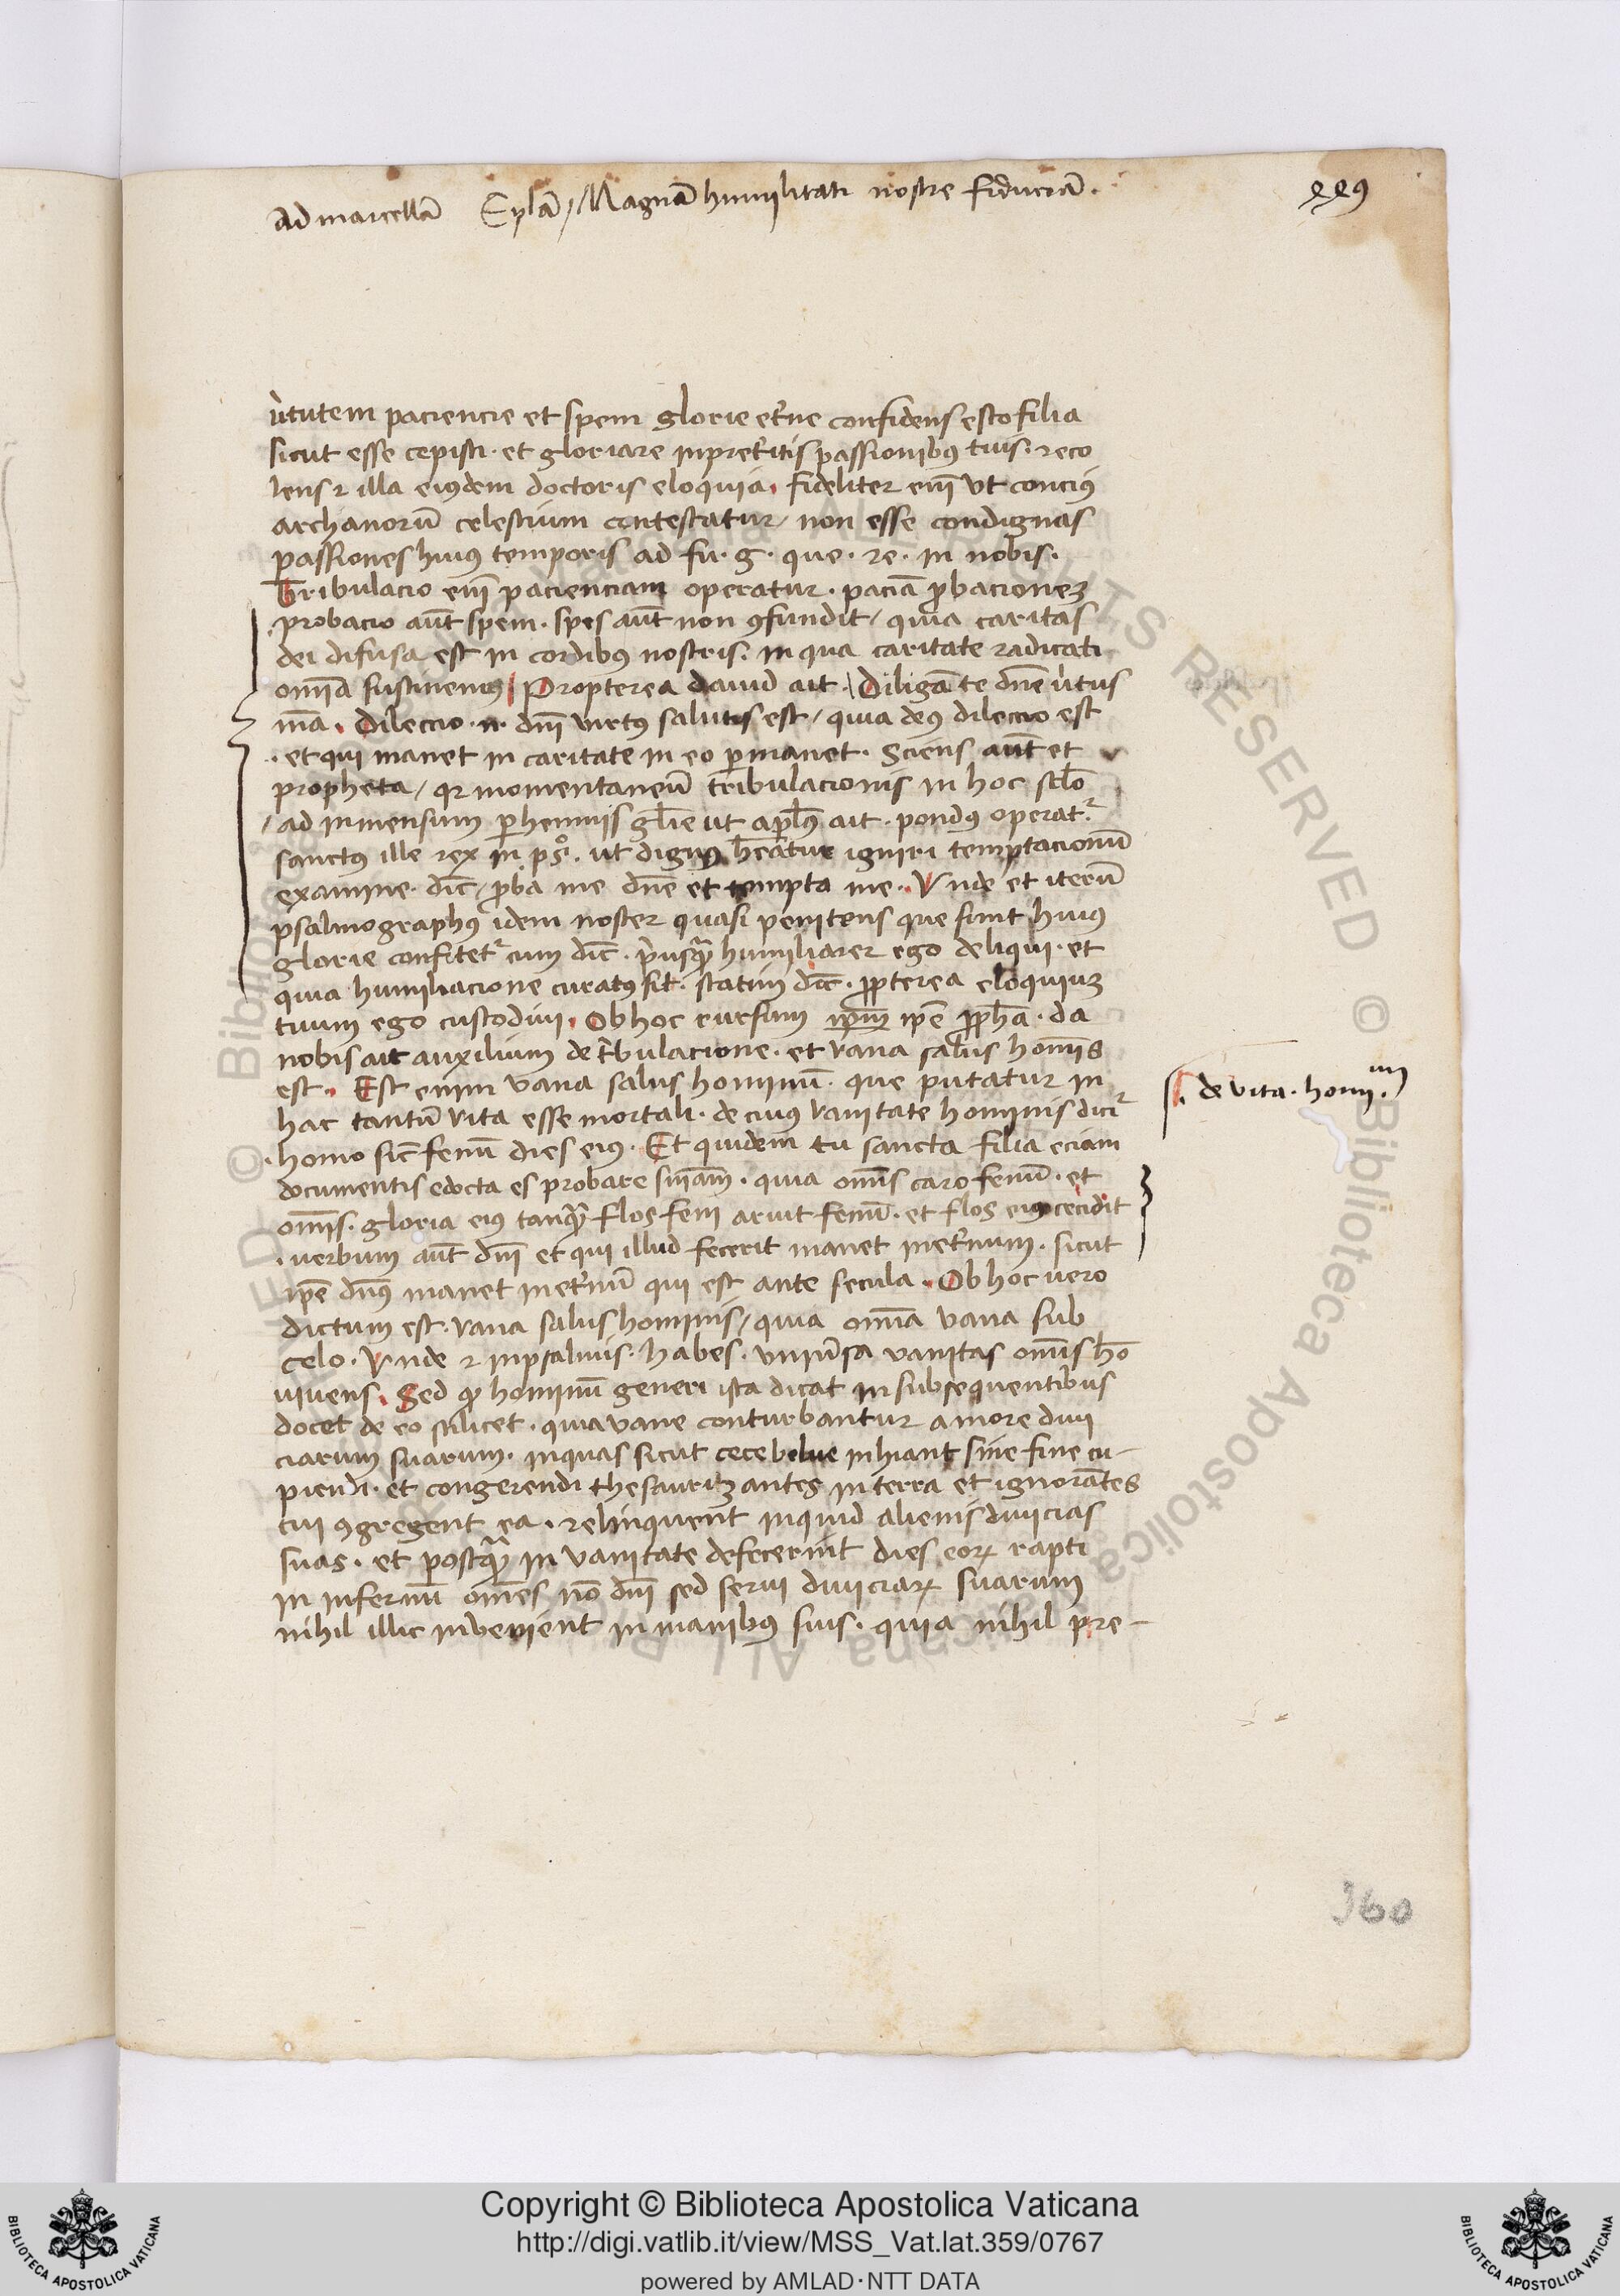 ad marcellã Ep̃lã / Magnã humilitati nostre fiduciã.
v̓tutem paciencie et spem glorie et̓ne confidens esto filia
sicut esse cepisti · et gloriare in pret̓itis passionibꝰ tuis · reco
lens ⁊ illa eiꝰdem doctoris eloquia · fideliter em̃ vt conciꝰ
archanorũ celestium contestatur / non esse condignas
passiones huiꝰ temporis ad fu · g · que · re · in nobis ·
Tribulacio em̃ pacienciam operatur · paciã ꝓbacioneꝫ
probacio aut̃ spem · spes aut̃ non ꝯfundit / quia caritas
dei difusa est in cordibꝰ nostris · in qua caritate radicati
om̃ia sustinemꝰ Propterea dauid ait · Diligã te dñe v̓tus
mã · Dileccio · n · dñi virtꝰ salutis est / quia deꝰ dileccio est
· et qui manet in caritate in eo ꝑmanet · Sciens aut̃ et
propheta / qꝛ momentaneũ tribulacionis in hoc sclo
/ ad inmensum ꝑhennis gl̃ie ut apl̃ꝰ ait · pondꝰ operat᷑
sanctꝰ ille rex in pso · ut dignꝰ h̃eatur igniri temptacionũ
examine · dic̃ / ꝓba me dñe et tempta me · Vnde et iterũ
psalmographꝰ idem noster quasi penitens que sunt huiꝰ
glorie confitet᷑ cum dic̃ · p̓usqᷓ humiliarer ego deliqui · et
quia humiliacione curatꝰ sit · statim dic̃ · ꝓpterea eloquiuꝫ
tuum ego custodiui · Ob hoc rursum ip̃m ip̃e ꝓph̃a · da
nobis ait auxilium de t̓bulacione · et vana salus hom̃is
est · Est enim vana salus hominũ · que putatur in
hac tantũ vita esse mortali · de cuiꝰ vanitate hominis dici᷑
· homo sic̃ fenũ dies eiꝰ · Et quidem tu sancta filia eciam
documentis edocta es probare sniãm · quia om̃is caro fenũ · et
om̃is · gloria eiꝰ tanqᷓ flos feni aruit fenũ · et flos eiꝰ cecidit
· uerbum aut̃ dñi et qui illud fecerit manet in et̓num · sicut
ip̃e dñꝰ manet in et̓nũ qui est ante secula · Ob hoc uero
dictum est · vana salus hominis / quia om̃ia vana sub
celo · Vnde ⁊ in psalmis · habes · vniu̓sa vanitas om̃is hõ
viuens · Sed qꝫ hominũ generi ista dicat in subsequentibus
docet de eo scilicet · quia vane conturbantur amore diui
ciarum suarum · in quas sicut cece belue inhiant sine fine cu-
piendi · et congerendi thesaurizantes in terra et ignorãtes
cui ꝯgregent ea · relinquent inquid alienis diuicias
suas · et postqᷓ in vanitate defecerint dies eoꝝ rapti
in infernũ om̃es nõ dñi sed serui diuiciaꝝ suarum
nihil illic invenient in manibꝰ suis · quia nihil pre-
de vita · homi · 
360
Copyright © Biblioteca Apostolica Vaticana
http://digi.vatlib.it/view/MSS_Vat.lat.359/0767
powered by AMLAD·NTT DATA
BIBLIOTECA APOSTOLICA VATICANA
BIBLIOTECA APOSTOLICA VATICANA